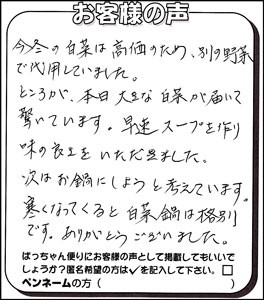 お客様の声
今冬の白菜は高価のため、別の野菜
で代用していました。
ところが、本日大きな白菜が届いて
驚いています。早速スープを作り
味の良さをいただきました。
次はお鍋にしようと考えています。
寒くなってくると白菜鍋は格別
です。ありがとうございました。
ばっちゃん便りにお客様の声として掲載してもいいで
しょうか?匿名希望の方は✓を記入して下さい。□
ペンネームの方( )